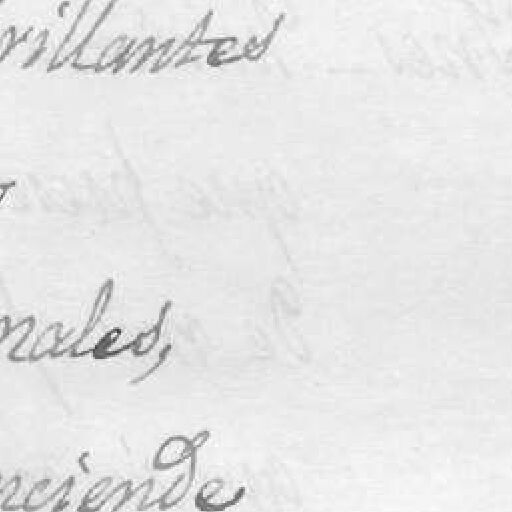 rillantes
nales,
nciende